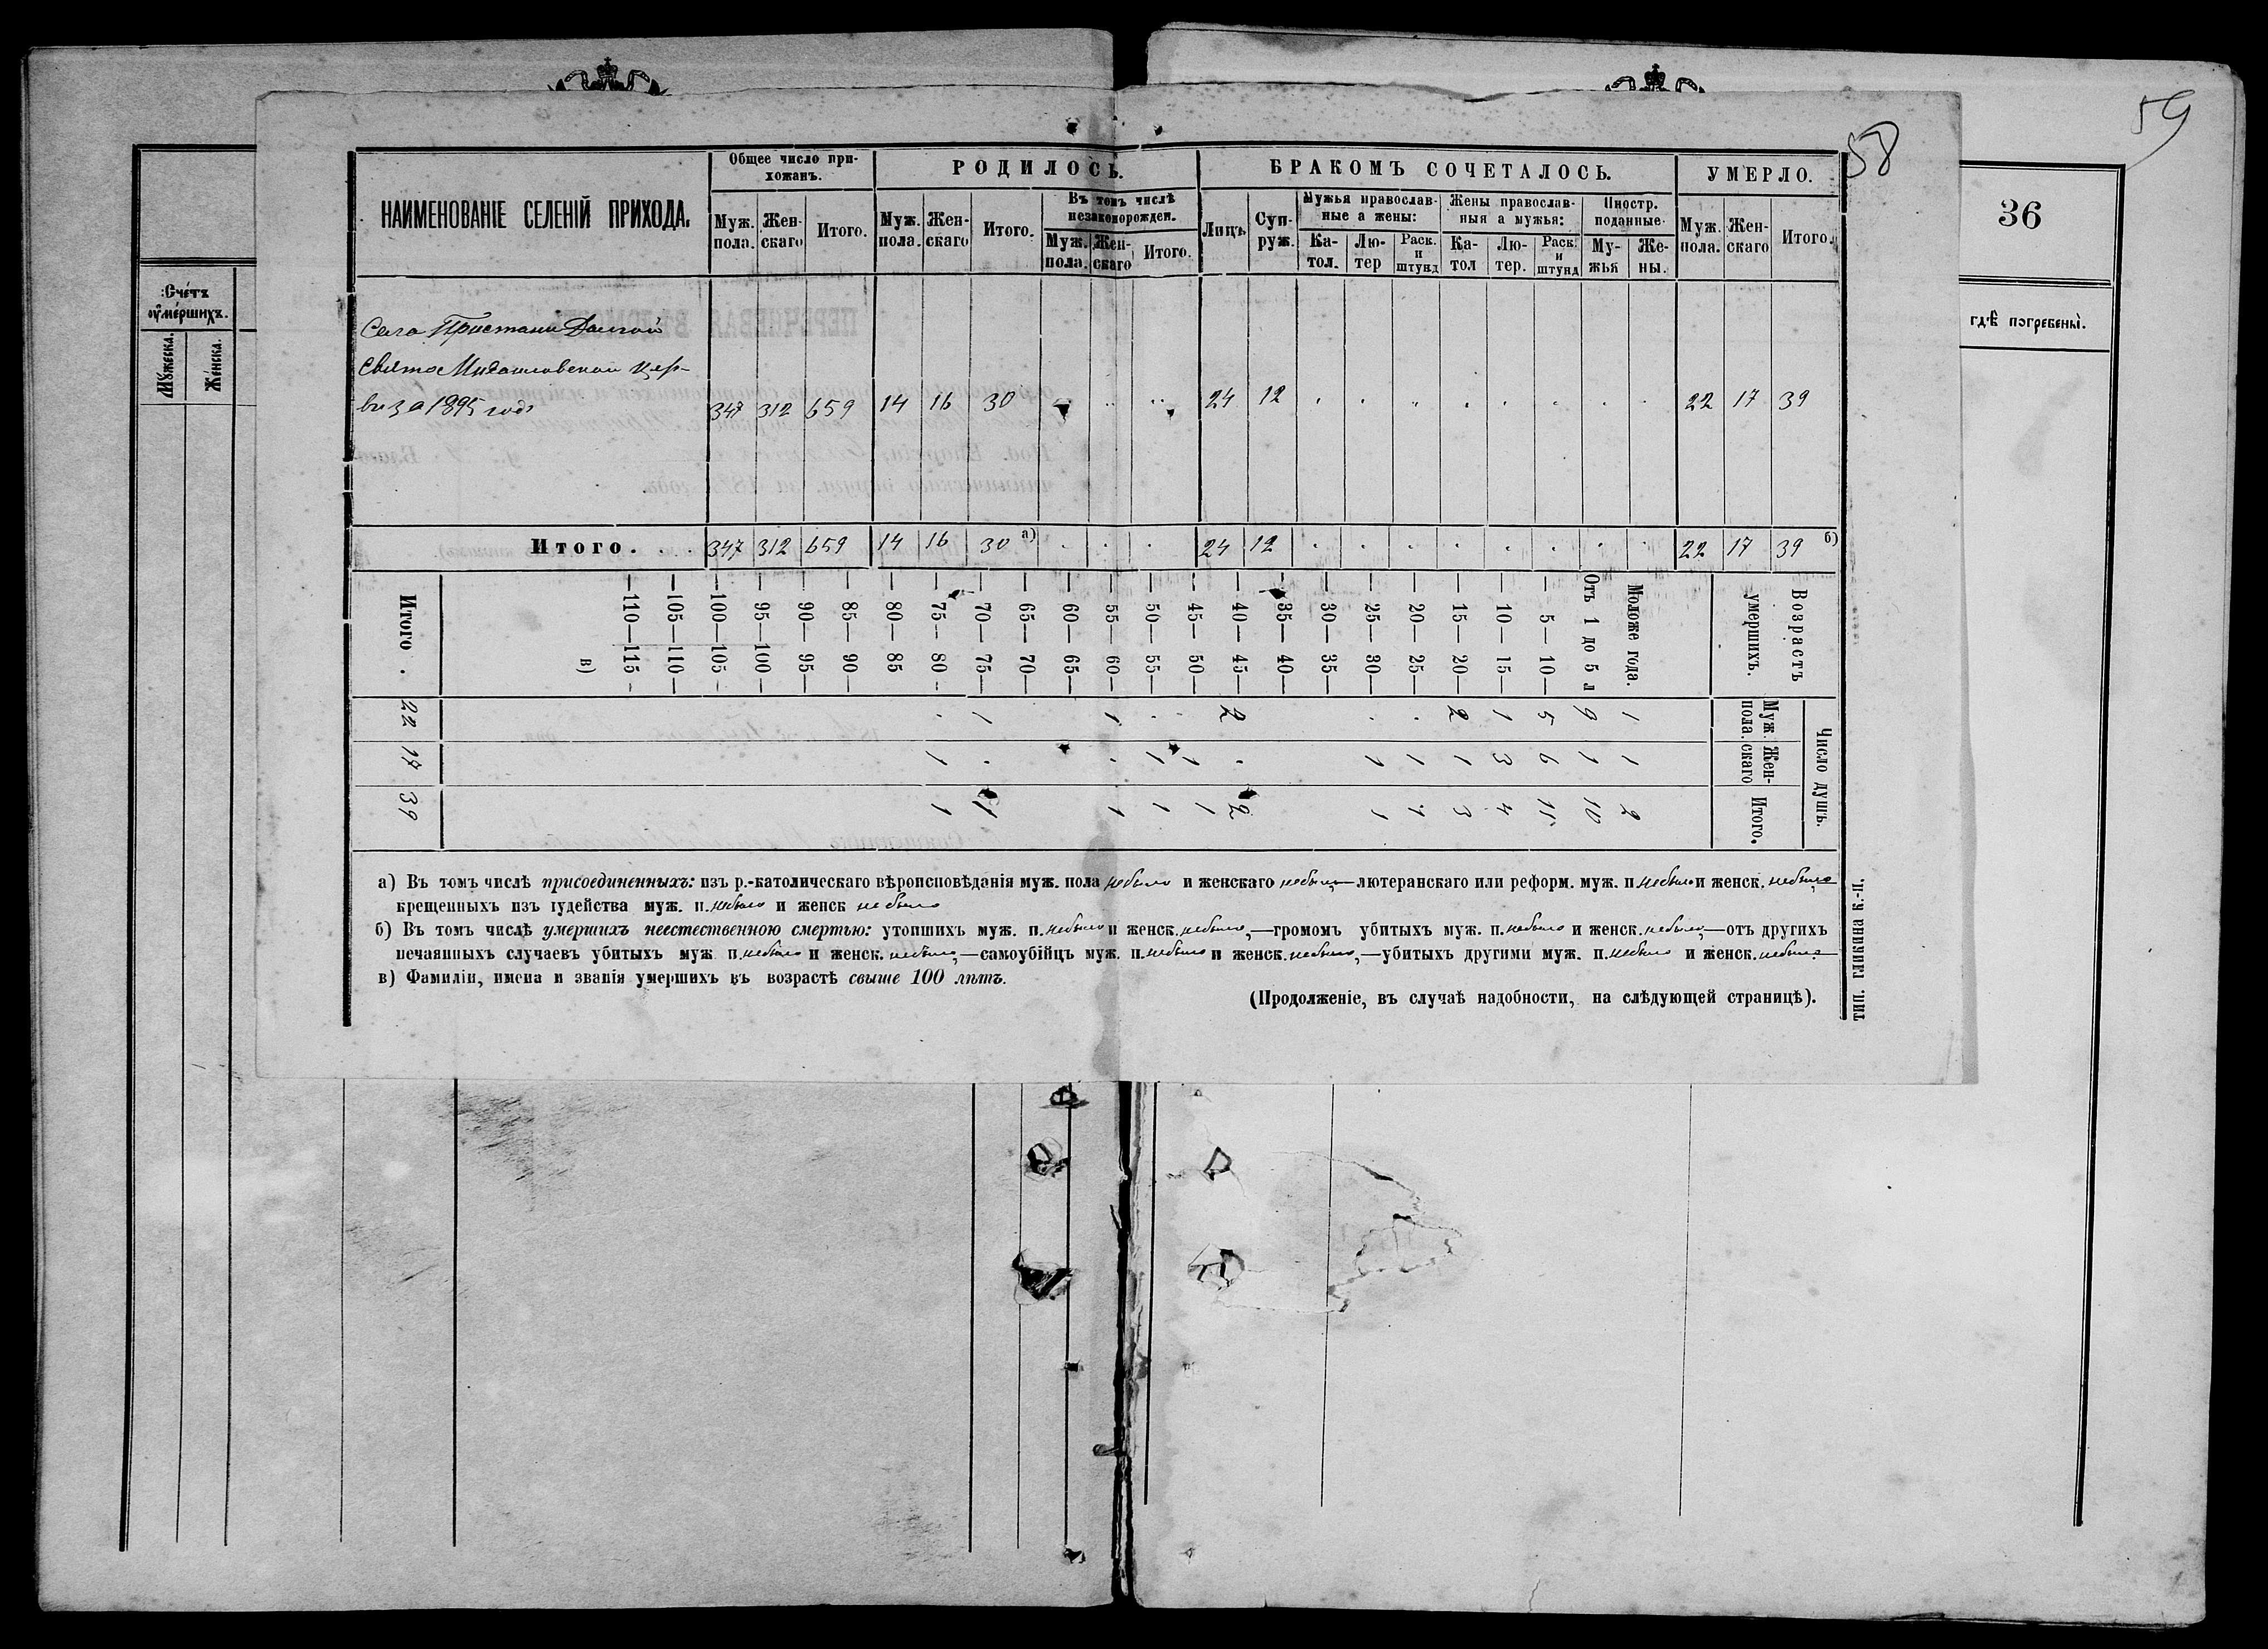 59
58
36
Счéтъ
ѹмéршихъ.
Мꙋжеска.
Жéнска.
гдѣ̀ погребены̀.
НАИМЕНОВАНІЕ СЕЛЕНІЙ ПРИХОДА.
Общее число при-
хожанъ.
Муж. пола.
Жен- скаго
Итого.
РОДИЛОСЬ.
Муж. пола.
Жен- скаго
Итого.
Въ томъ числѣ
незаконорожден.
Муж. пола.
Жен- скаго
Итого.
БРАКОМЪ СОЧЕТАЛОСЬ.
Лицъ
Суп- руж.
Мужья православ-
ные а жены:
Ка- тол.
Лю- тер
Раск. и штунд
Жены православ-
ныя а мужья:
Ка- тол
Лю- тер.
Раск. и штунд
Иностр.
поданные.
Му- жья
Же- ны.
УМЕРЛО.
Муж. пола.
Жен- скаго
Итого.
Села Пристани
Свято Михайловской Цер-
кви за 1895 годъ
347 312 659 14 16 30 24 12 22 17 39
Итого. . . . 347 312 659 14 16 30 а) 24 12 22 17 39 б)
Возрастъ
умершихъ.
Моложе года.
Отъ 1 до 5 л
5—10—
10—15—
15—20—
20—25—
25—30—
30—35—
35—40—
40—45—
45—50—
50—55—
55—60—
60—65—
65—70—
70—75—
75—80—
80—85
85—90—
90—95—
95—100—
100—105—
105—110—
110—115—
в)
Итого .
Число душъ.
Муж. пола.
1 9 5 1 2 2 1 1 22
Жен- скаго
1 1 6 3 1 1 1 1 1 1 17
Итого.
2 10 11 4 3 1 1 2 1 1 1 1 1 39
а) Въ томъ числѣ присоединенныхъ: изъ р.-католическаго вѣроисповѣданія муж. пола небыло и женскаго небыло,—лютеранскаго или реформ. муж. п небыло и женск. небыло
крещенныхъ изъ іудейства муж. п. небыло и женск небыло
б) Въ томъ числѣ умершихъ неестественною смертью: утопшихъ муж. п. небыло и женск. небыло,—громомъ убитыхъ муж. п. небыло и женск. небыло,—отъ другихъ
нечаянныхъ случаевъ убитыхъ муж п. небыло и женск. небыло,—самоубійцъ муж. п. небыло и женск. небыло,—убитыхъ другими муж. п. небыло и женск. небыло
в) Фамиліи, имена и званія умершихъ въ возрастѣ свыше 100 лѣтъ.
(Продолженіе, въ случаѣ надобности, на слѣдующей страницѣ).